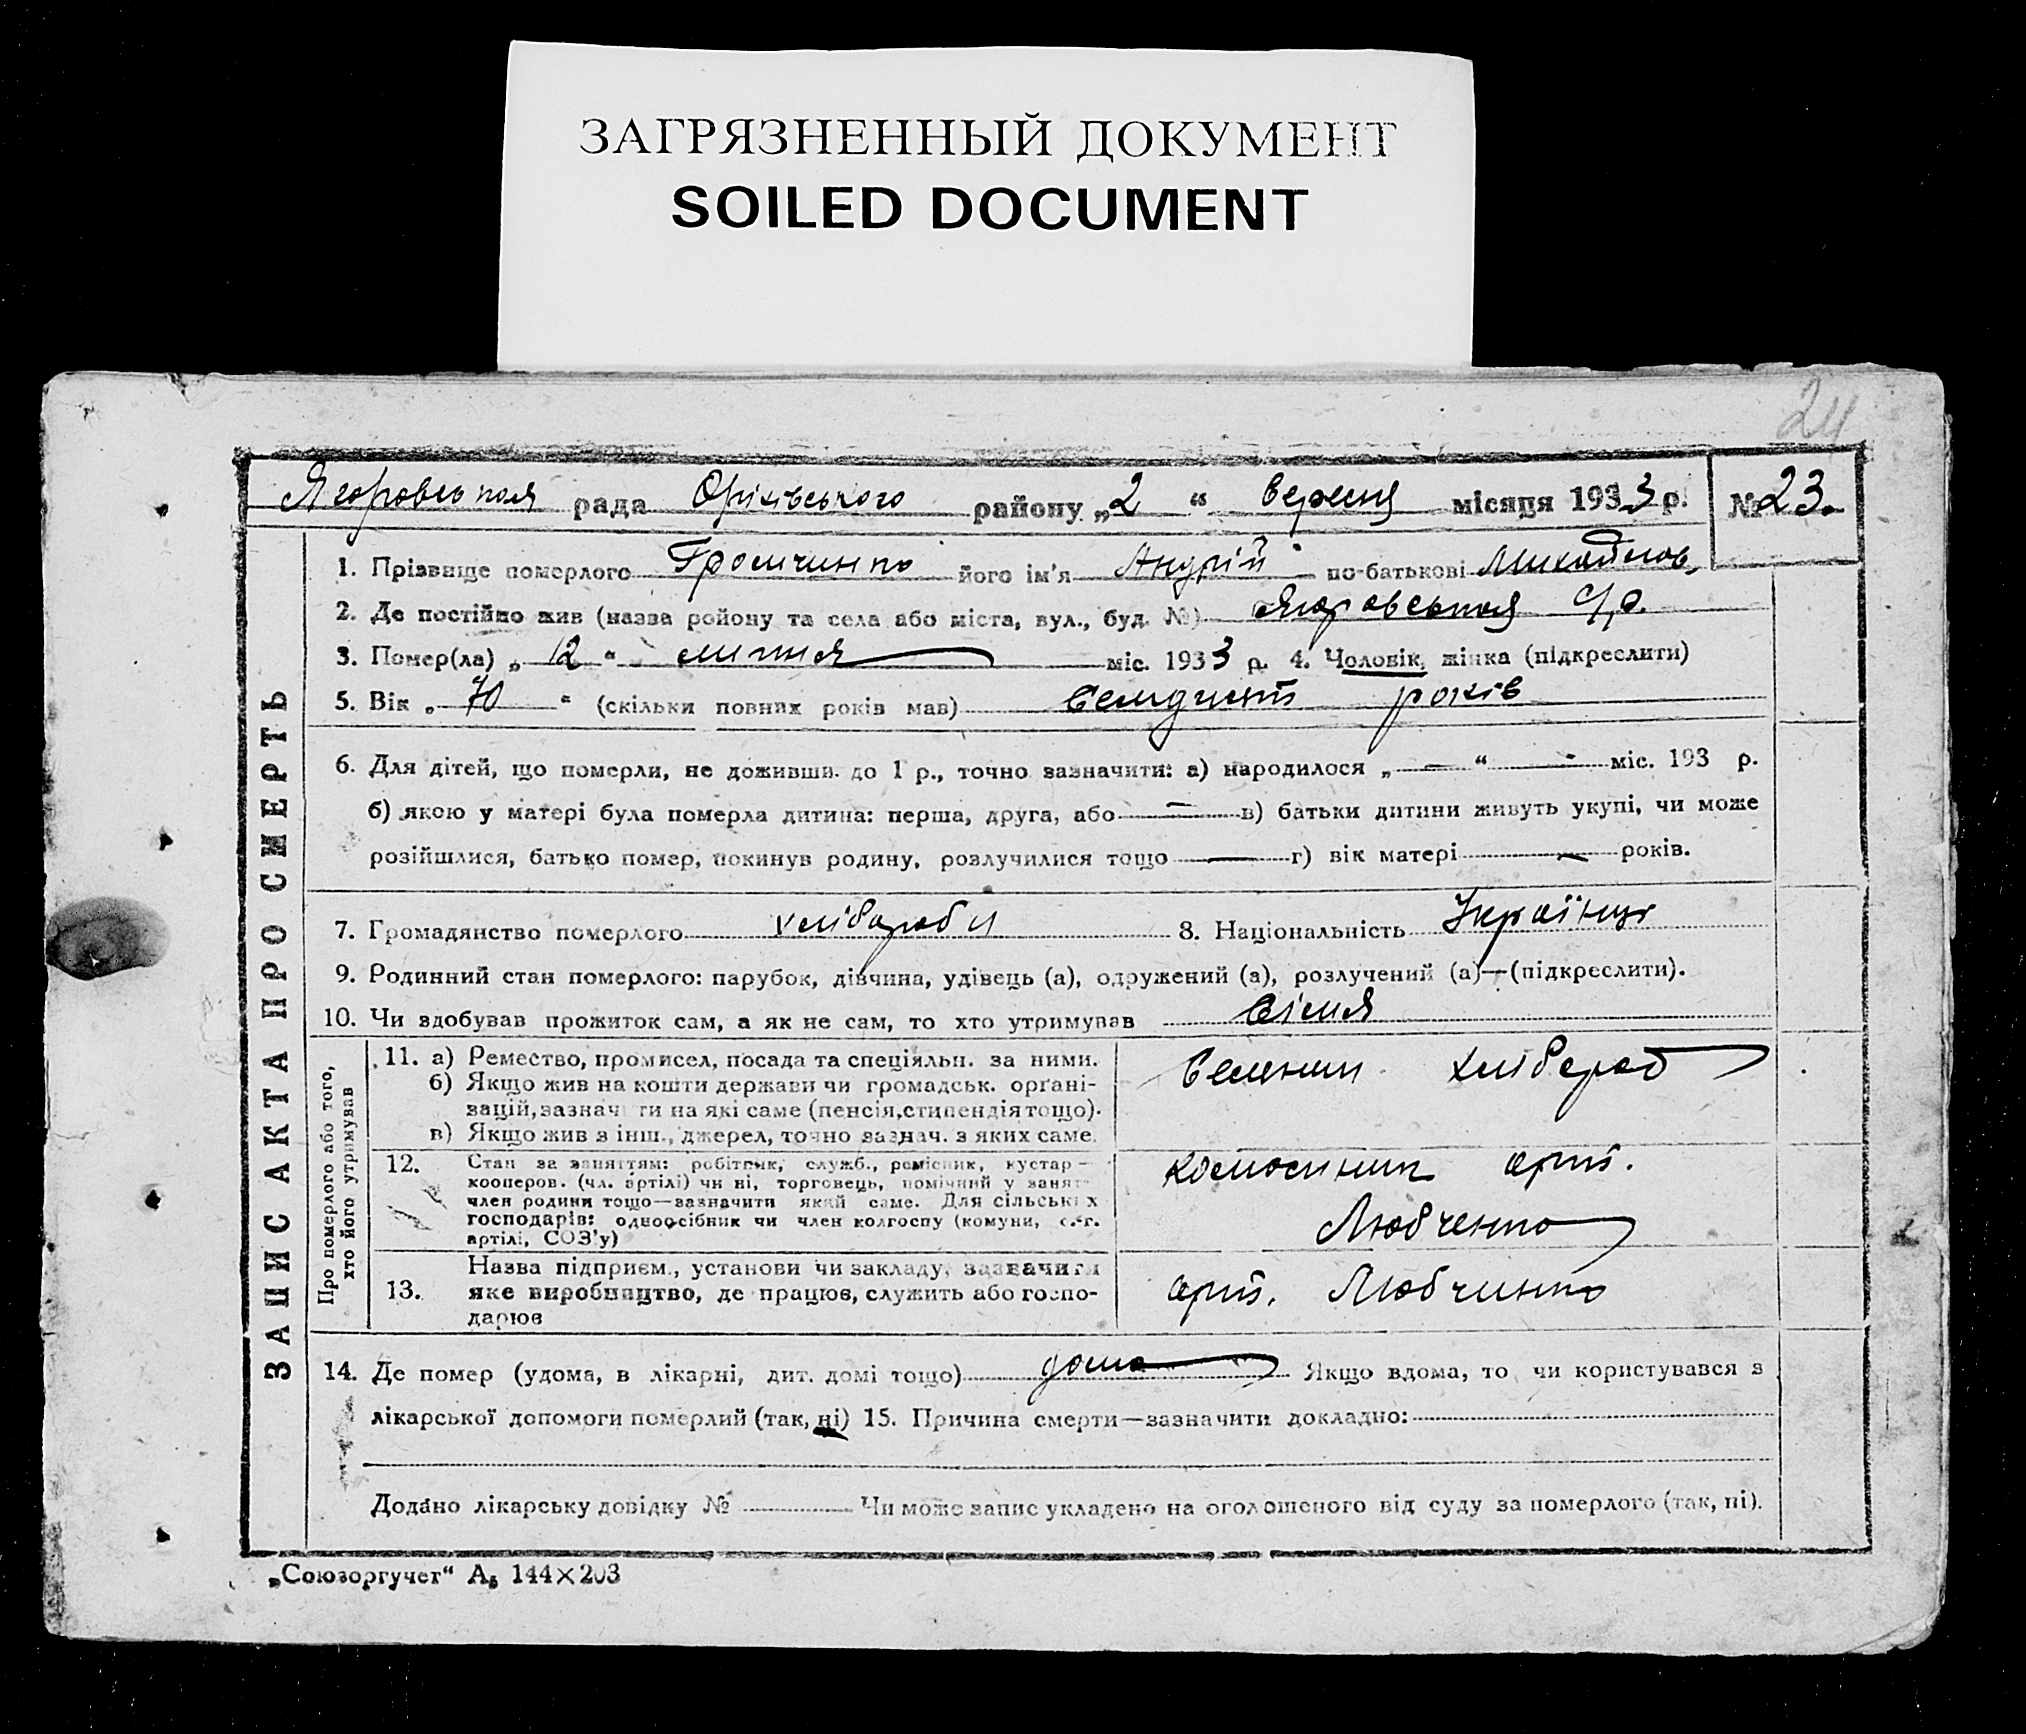 ЗАГРЯЗНЕННЫЙ ДОКУМЕНТ
SOILED DOCUMENT
24
рада Оріхівського району „2“ вересня місяця 1933 р. № 23.
1. Прізвище померлого його ім'я Андрій по-батькові Михайлов.
2. Де постійно жив (назва району та села або міста, вул., буд. №) с/р.
3. Помер(ла) „12“ липня міс. 1933 р. 4. Чоловік, жінка (підкреслити)
5. Вік „70“ (скільки повних років мав) років
6. Для дітей, що померли, не доживши до 1 р., точно зазначити: а) народилося „—“ — міс. 193 р.
б) якою у матері була померла дитина: перша, друга, або — в) батьки дитини живуть укупі, чи може
розійшлися, батько помер, покинув родину, розлучилися тощо — г) вік матері — років.
7. Громадянство померлого хлібороб 8. Національність Українць
9. Родинний стан померлого: парубок, дівчина, удівець (а), одружений (а), розлучений (а)—(підкреслити).
10. Чи здобував прожиток сам, а як не сам, то хто утримував сімя
ЗАПИС АКТА ПРО СМЕРТЬ
Про померлого або того,
хто його утримував
11. а) Ремество, промисел, посада та спеціяльн. за ними.
б) Якщо жив на кошти держави чи громадськ. орґані-
зацій, зазначити на які саме (пенсія, стипендія тощо).
в) Якщо жив з інш., джерел, точно зазнач. з яких саме.
хлібороб
12. Стан за заняттям: робітник, служб., ремісник, кустар—
кооперов. (чл. артілі) чи ні, торговець, помічний у занят.
член родини тощо—зазначити який саме. Для сільських
господарів: одноосібник чи член колгоспу (комуни, с.-г.
артілі, СОЗ'у)
арт.
Любченко
13. Назва підприєм., установи чи закладу, зазначити
яке виробництво, де працюв, служить або госпо-
дарюв
арт. Любчинко
14. Де помер (удома, в лікарні, дит. домі тощо) дома Якщо вдома, то чи користувався з
лікарської допомоги померлий (так, ні) 15. Причина смерти—зазначити докладно:
Додано лікарську довідку № Чи може запис укладено на оголошеного від суду за померлого (так, ні).
„Союзоргучет“ А₅ 144×203